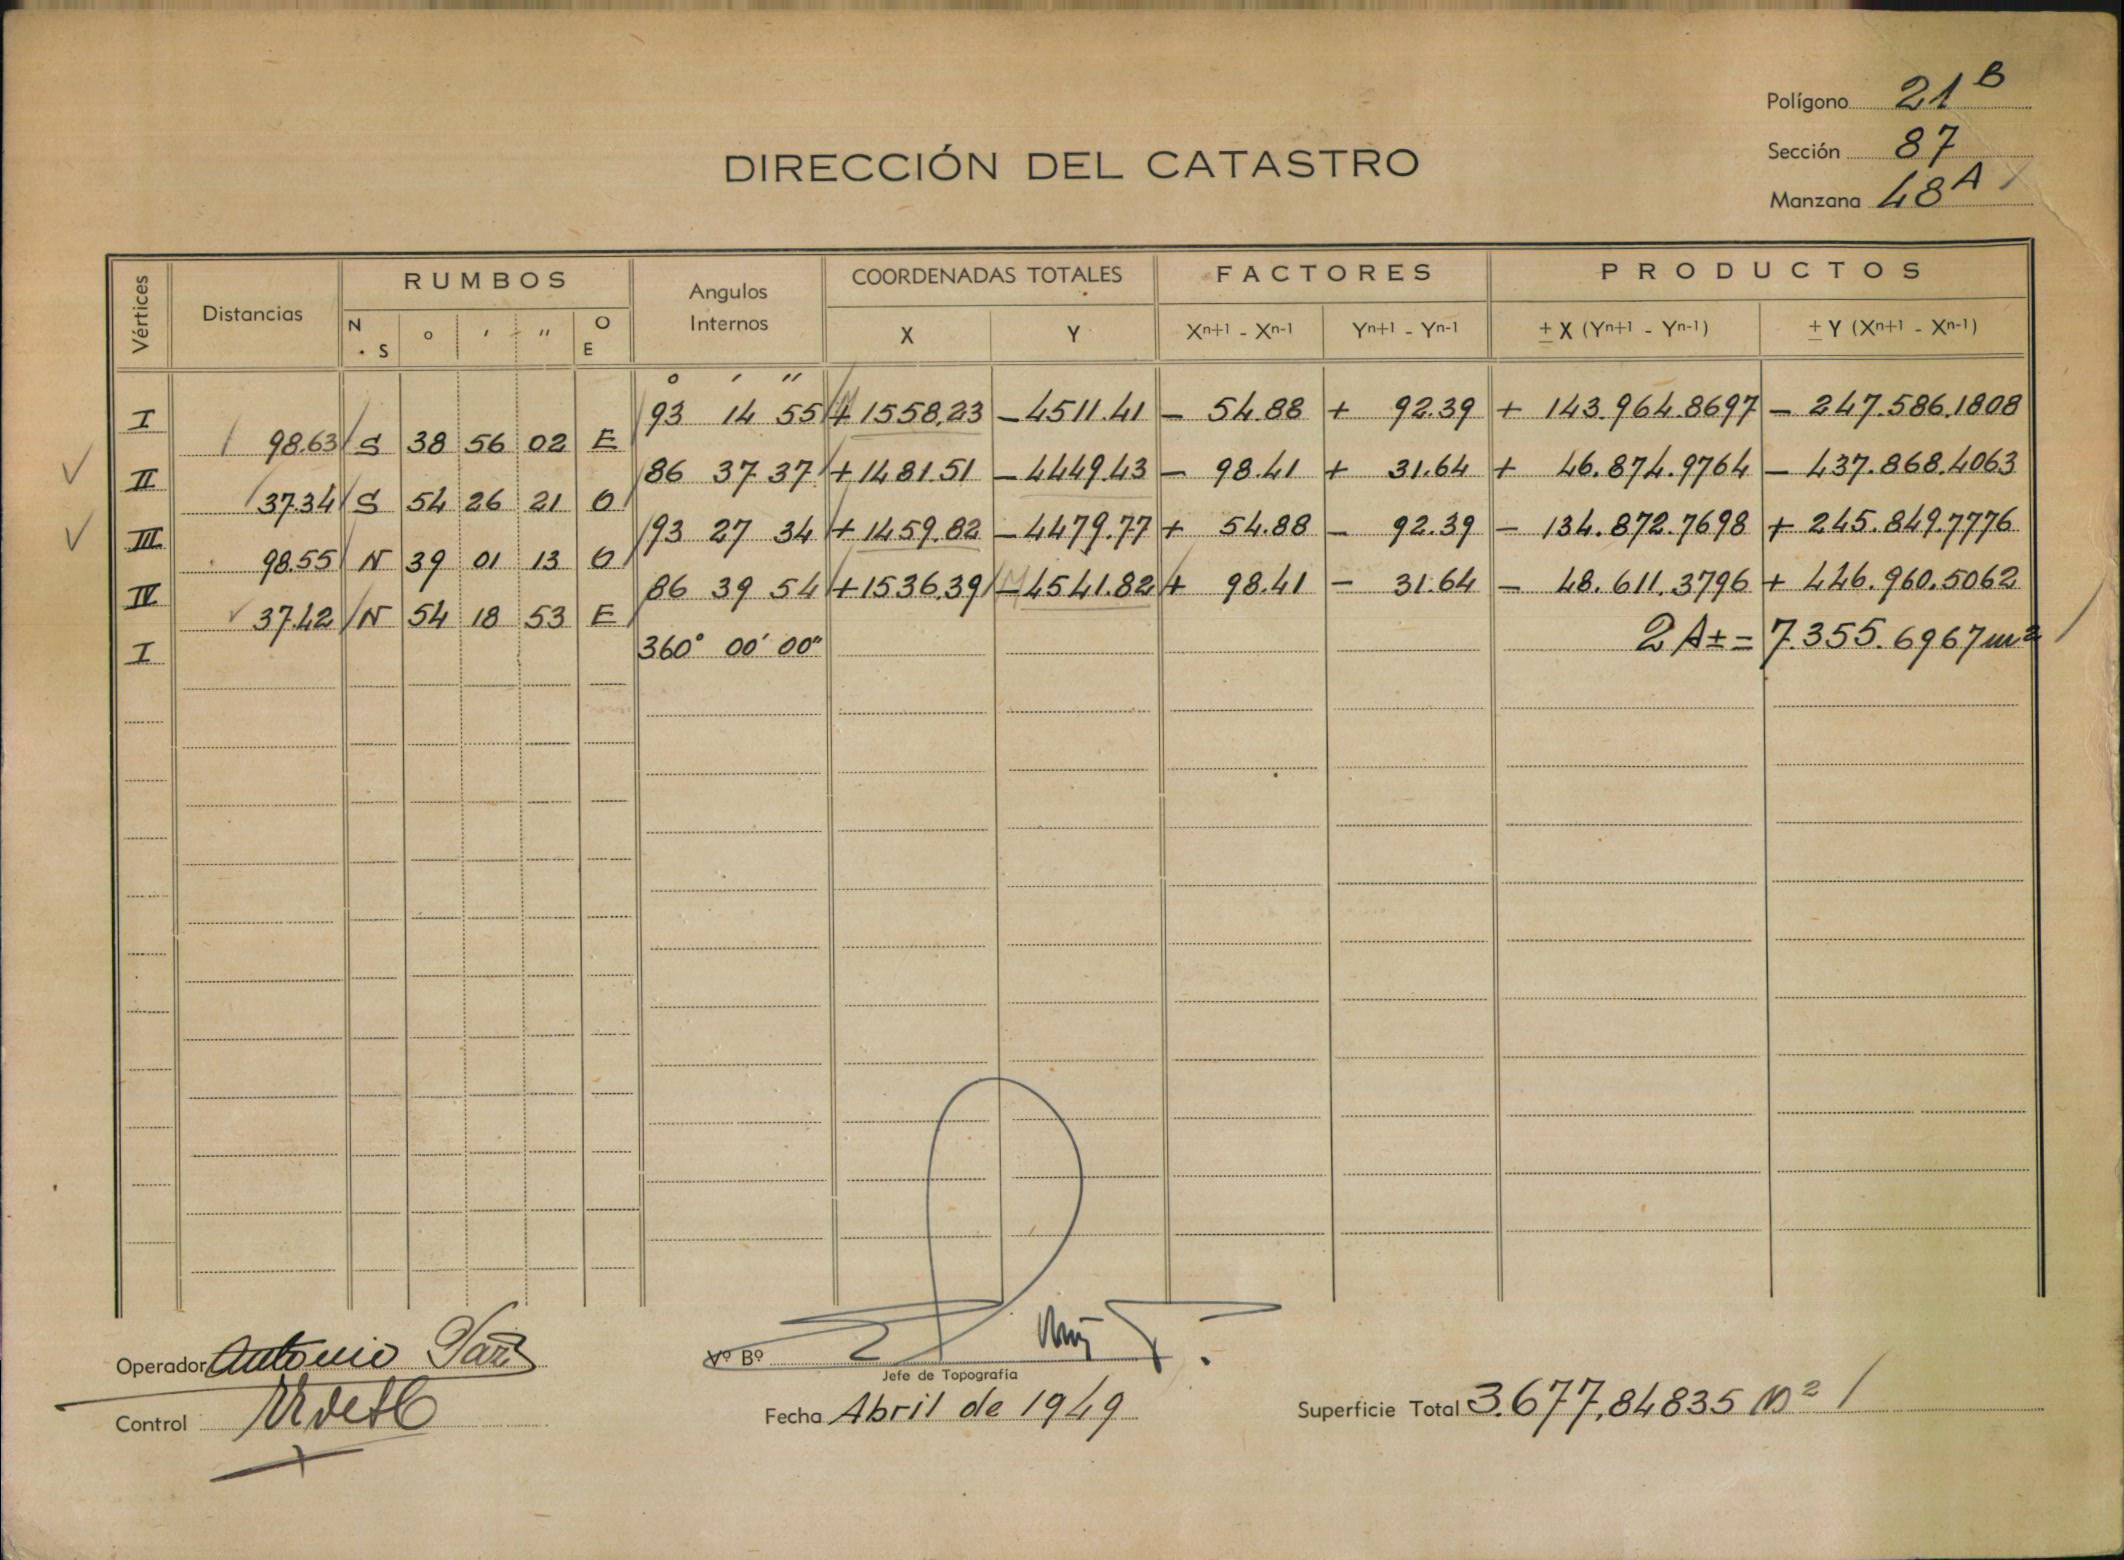 Polígono 21 B
Sección 87
Manzana 48 A
DIRECCIÓN DEL CATASTRO
Vértices Distancias RUMBOS Angulos Internos COORDENADAS TOTALES FACTORES PRODUCTOS
N S ° ' " O E X Y Xn+1 - Xn-1 Yn+1 - Yn-1 ± X (Yn+1 - Yn-1) ± Y (Xn+1 - Xn-1)
° ' "
I 93 14 55 + 1558.23 - 4511.41 - 54.88 + 92.39 + 143.964.8697 - 247.586.1808
98.63 S 38 56 02 E
II 86 37 37 + 1481.51 - 4449.43 - 98.41 + 31.64 + 46.874.9764 - 437.868.4063
37.34 S 54 26 21 O
III 93 27 34 + 1459.82 - 4479.77 + 54.88 - 92.39 - 134.872.7698 + 245.849.7776
98.55 N 39 01 13 O
IV 86 39 54 + 1536.39 - 4541.82 + 98.41 - 31.64 - 48.611.3796 + 446.960.5062
37.42 N 54 18 53 E
I 360° 00' 00" 2 A ± = 7.355.6967 m²
Operador Antonio
Vº Bº
Jefe de Topografía
Control
Fecha Abril de 1949
Superficie Total 3.677,84835 m²